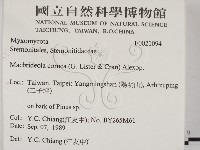 國立自然科學博物館
NATIONAL MUSEUM OF NATURAL SCIENCE
TAICHUNG, TAIWAN, R.O.CHINA
Myxomycota F0021094
Stemonitales, Stemonitidaceae
Macbrideola cornea (G. Lister & Cran) Alexop.
Loc.: Taiwan. Taipei: Yangmingshan (陽明山), Arhtzuping
(二子坪)
on bark of Pinus sp.
Col.: Y.C. Chiang(江友中); No. BY265M61
Date: Sep. 07, 1989
Det.: Y. C. Chiang (江友中)